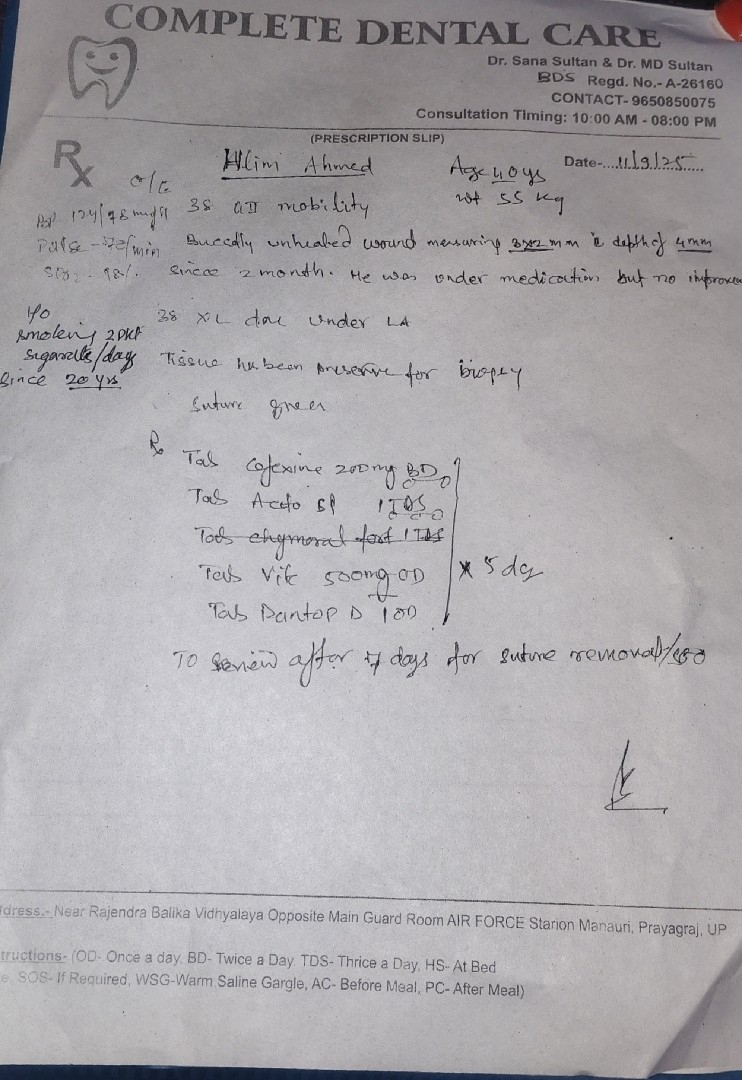 COMPLETE DENTAL CARE
Dr. Sana Sultan & Dr. MD Sultan
BDS Regd. No.- A-26160
CONTACT- 9650850075
Consultation Timing: 10:00 AM - 08:00 PM
(PRESCRIPTION SLIP)
Rx Ahmed Age 40ys Date-...11/9/25.....
o/E wt 55 kg
38 mobility
Pulse - /min Buccally unhealed wound measuring 3x2 mm depth of 4mm
since 2 month. He was under medication but no
38 XL under LA
smoking 2 /day
since 20 yrs
Tissue has been preserve for biopsy
suture
Rx
Tab 200mg BD
Tab SP 1 TDS
Tab chymoral fort 1 TDS
Tab Vit c 500mg OD x 5
Tab Pantop D 1 OD
To after 7 days for suture removal/
dress.- Near Rajendra Balika Vidhyalaya Opposite Main Guard Room AIR FORCE Starion Manauri, Prayagraj, UP
tructions- (OD- Once a day, BD- Twice a Day, TDS- Thrice a Day, HS- At Bed
e, SOS- If Required, WSG-Warm Saline Gargle, AC- Before Meal, PC- After Meal)